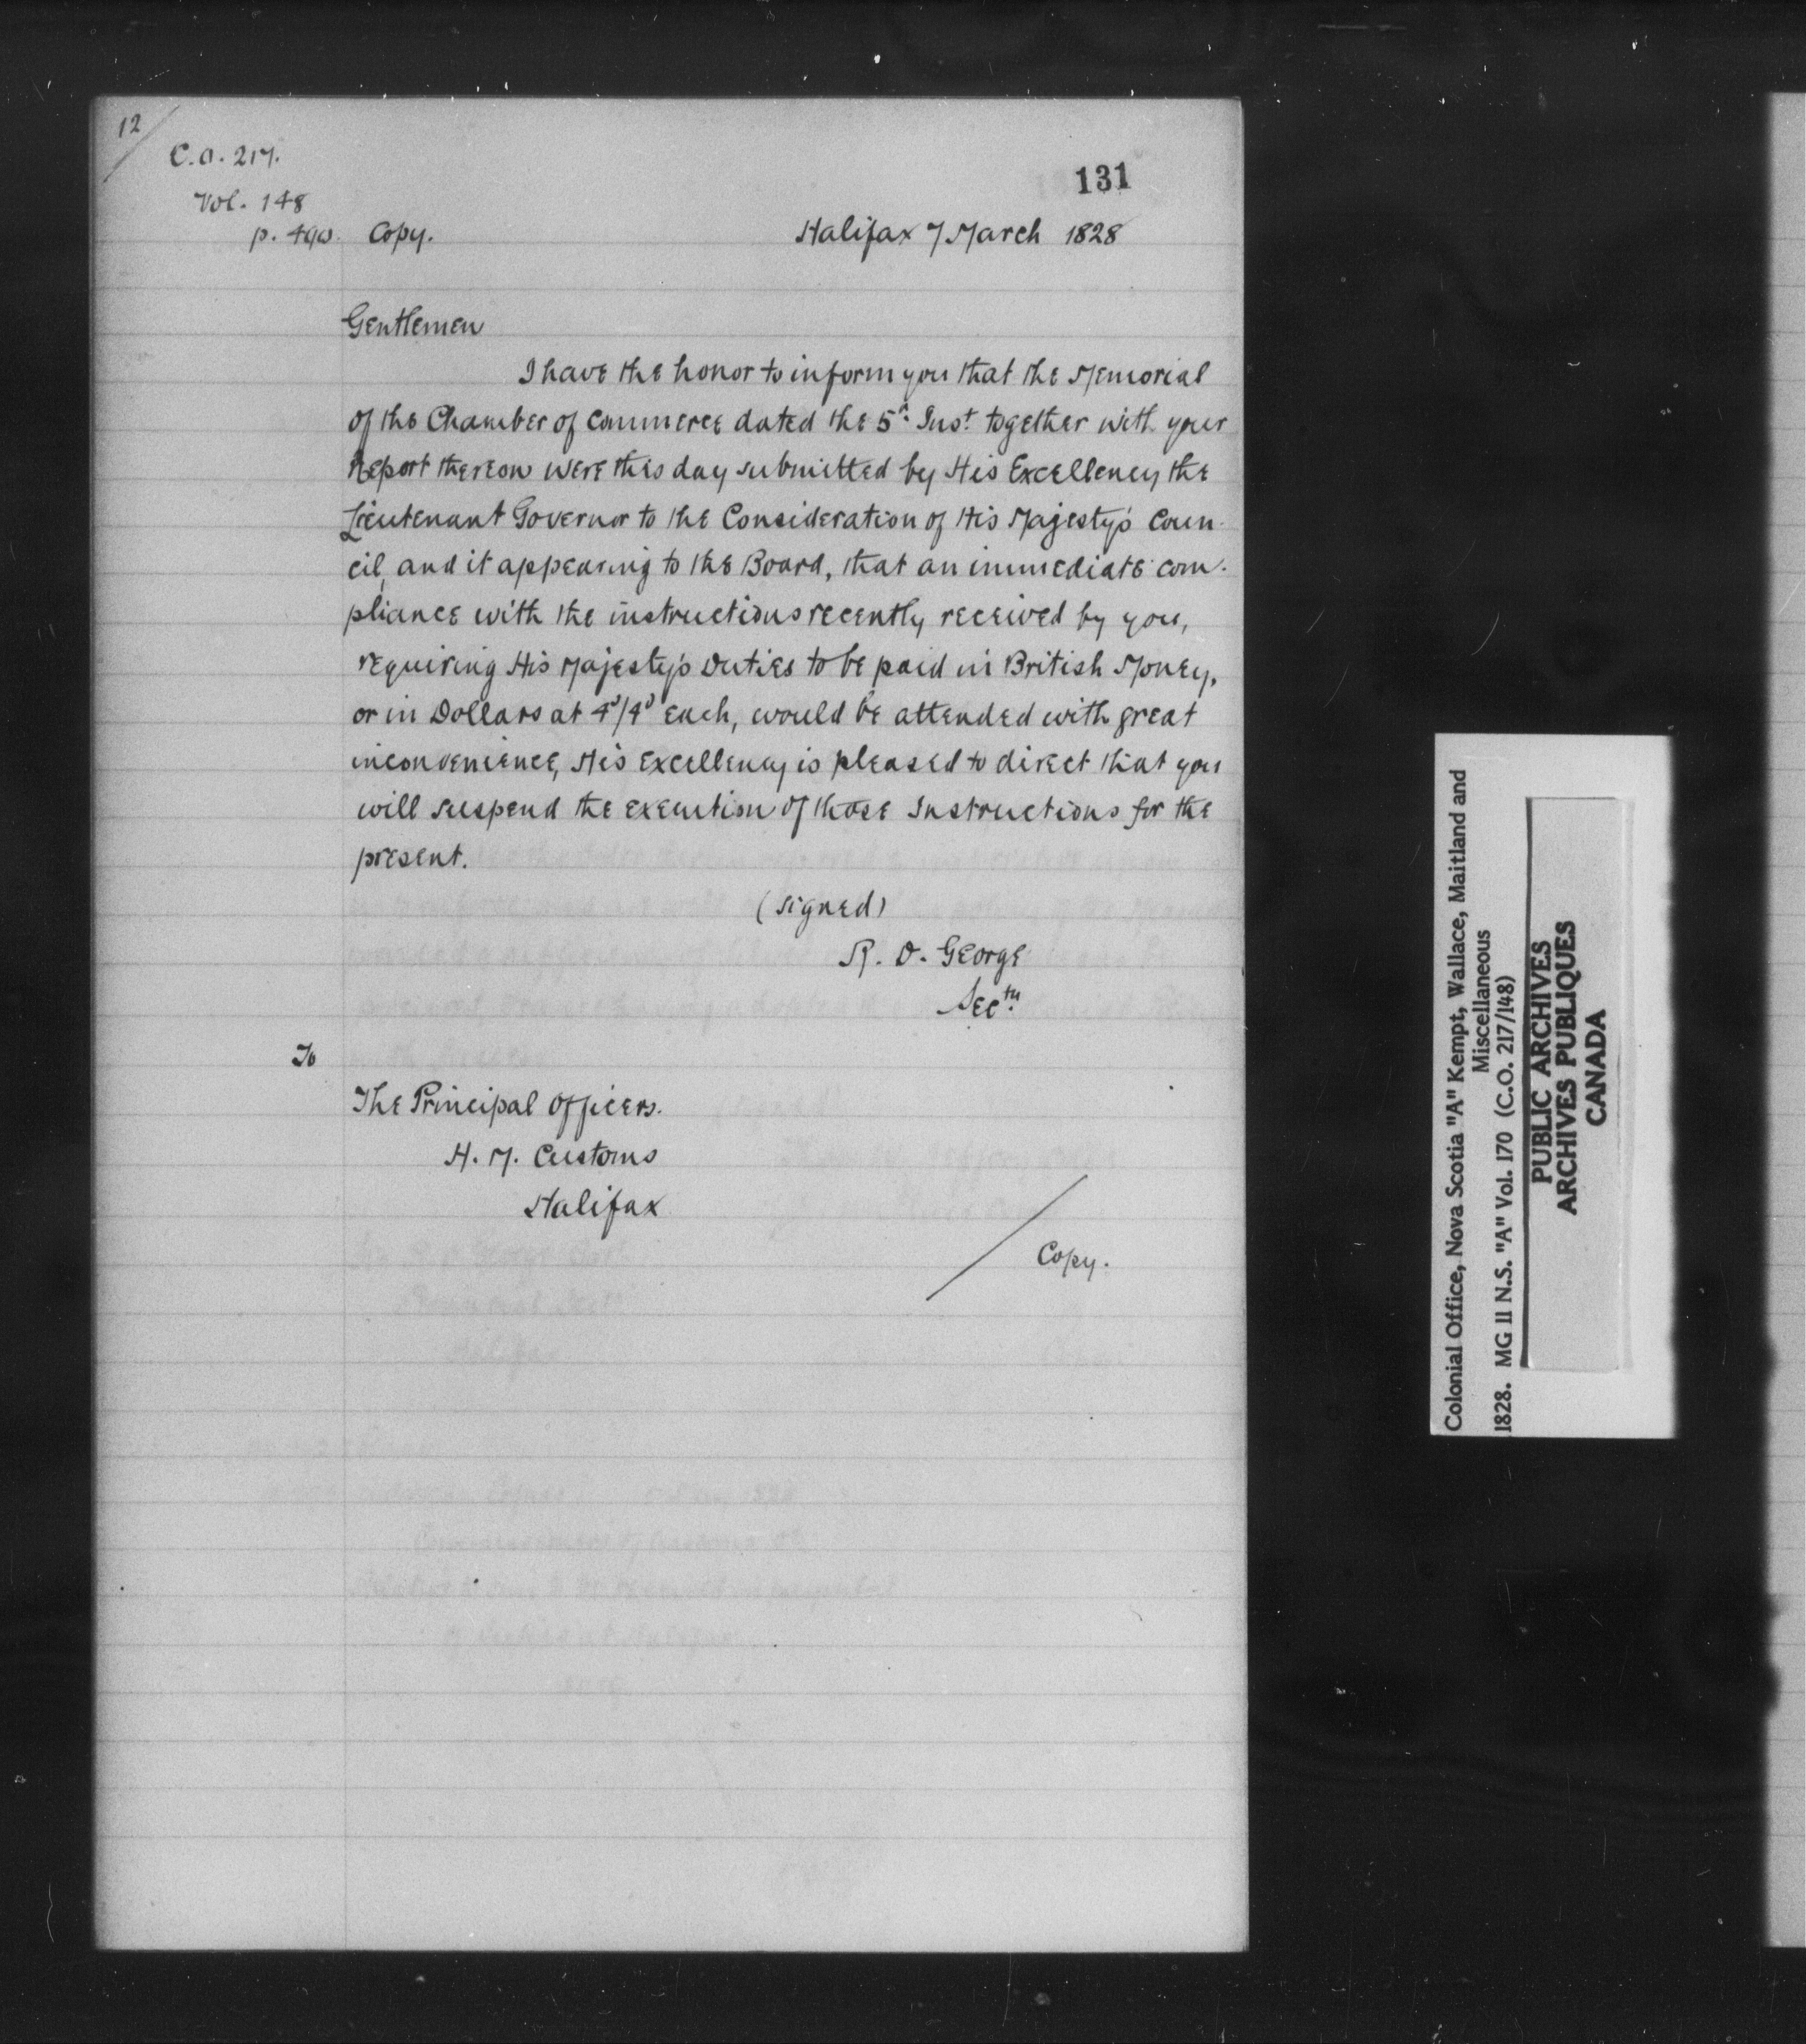 12
C.O. 217.
131
Vol. 148
p. Copy.
Halifax 7 March 1828
Gentlemen
I have the honor to inform you that the Memorial
of the Chamber of Commerce dated the 5th Inst. together with your
Report thereon were this day submitted by His Excellency the
Lieutenant Governor to the Consideration of His Majesty's Coun-
cil, and it appearing to the Board, that an immediate com-
pliance with the instructions recently received by you,
requiring His Majesty's Duties to be paid in British Money,
or in Dollars at 4s/4d each, would be attended with great
inconvenience, His Excellency is pleased to direct that you
will suspend the execution of those Instructions for the
present.
(signed)
R. D. George
Secty.
To
The Principal Officers.
H. M. Customs
Halifax
Copy.
Colonial Office, Nova Scotia "A" Kempt, Wallace, Maitland and
Miscellaneous
1828. MG 11 N.S. "A" Vol. 170 (C.O. 217/148)
PUBLIC ARCHIVES
ARCHIVES PUBLIQUES
CANADA